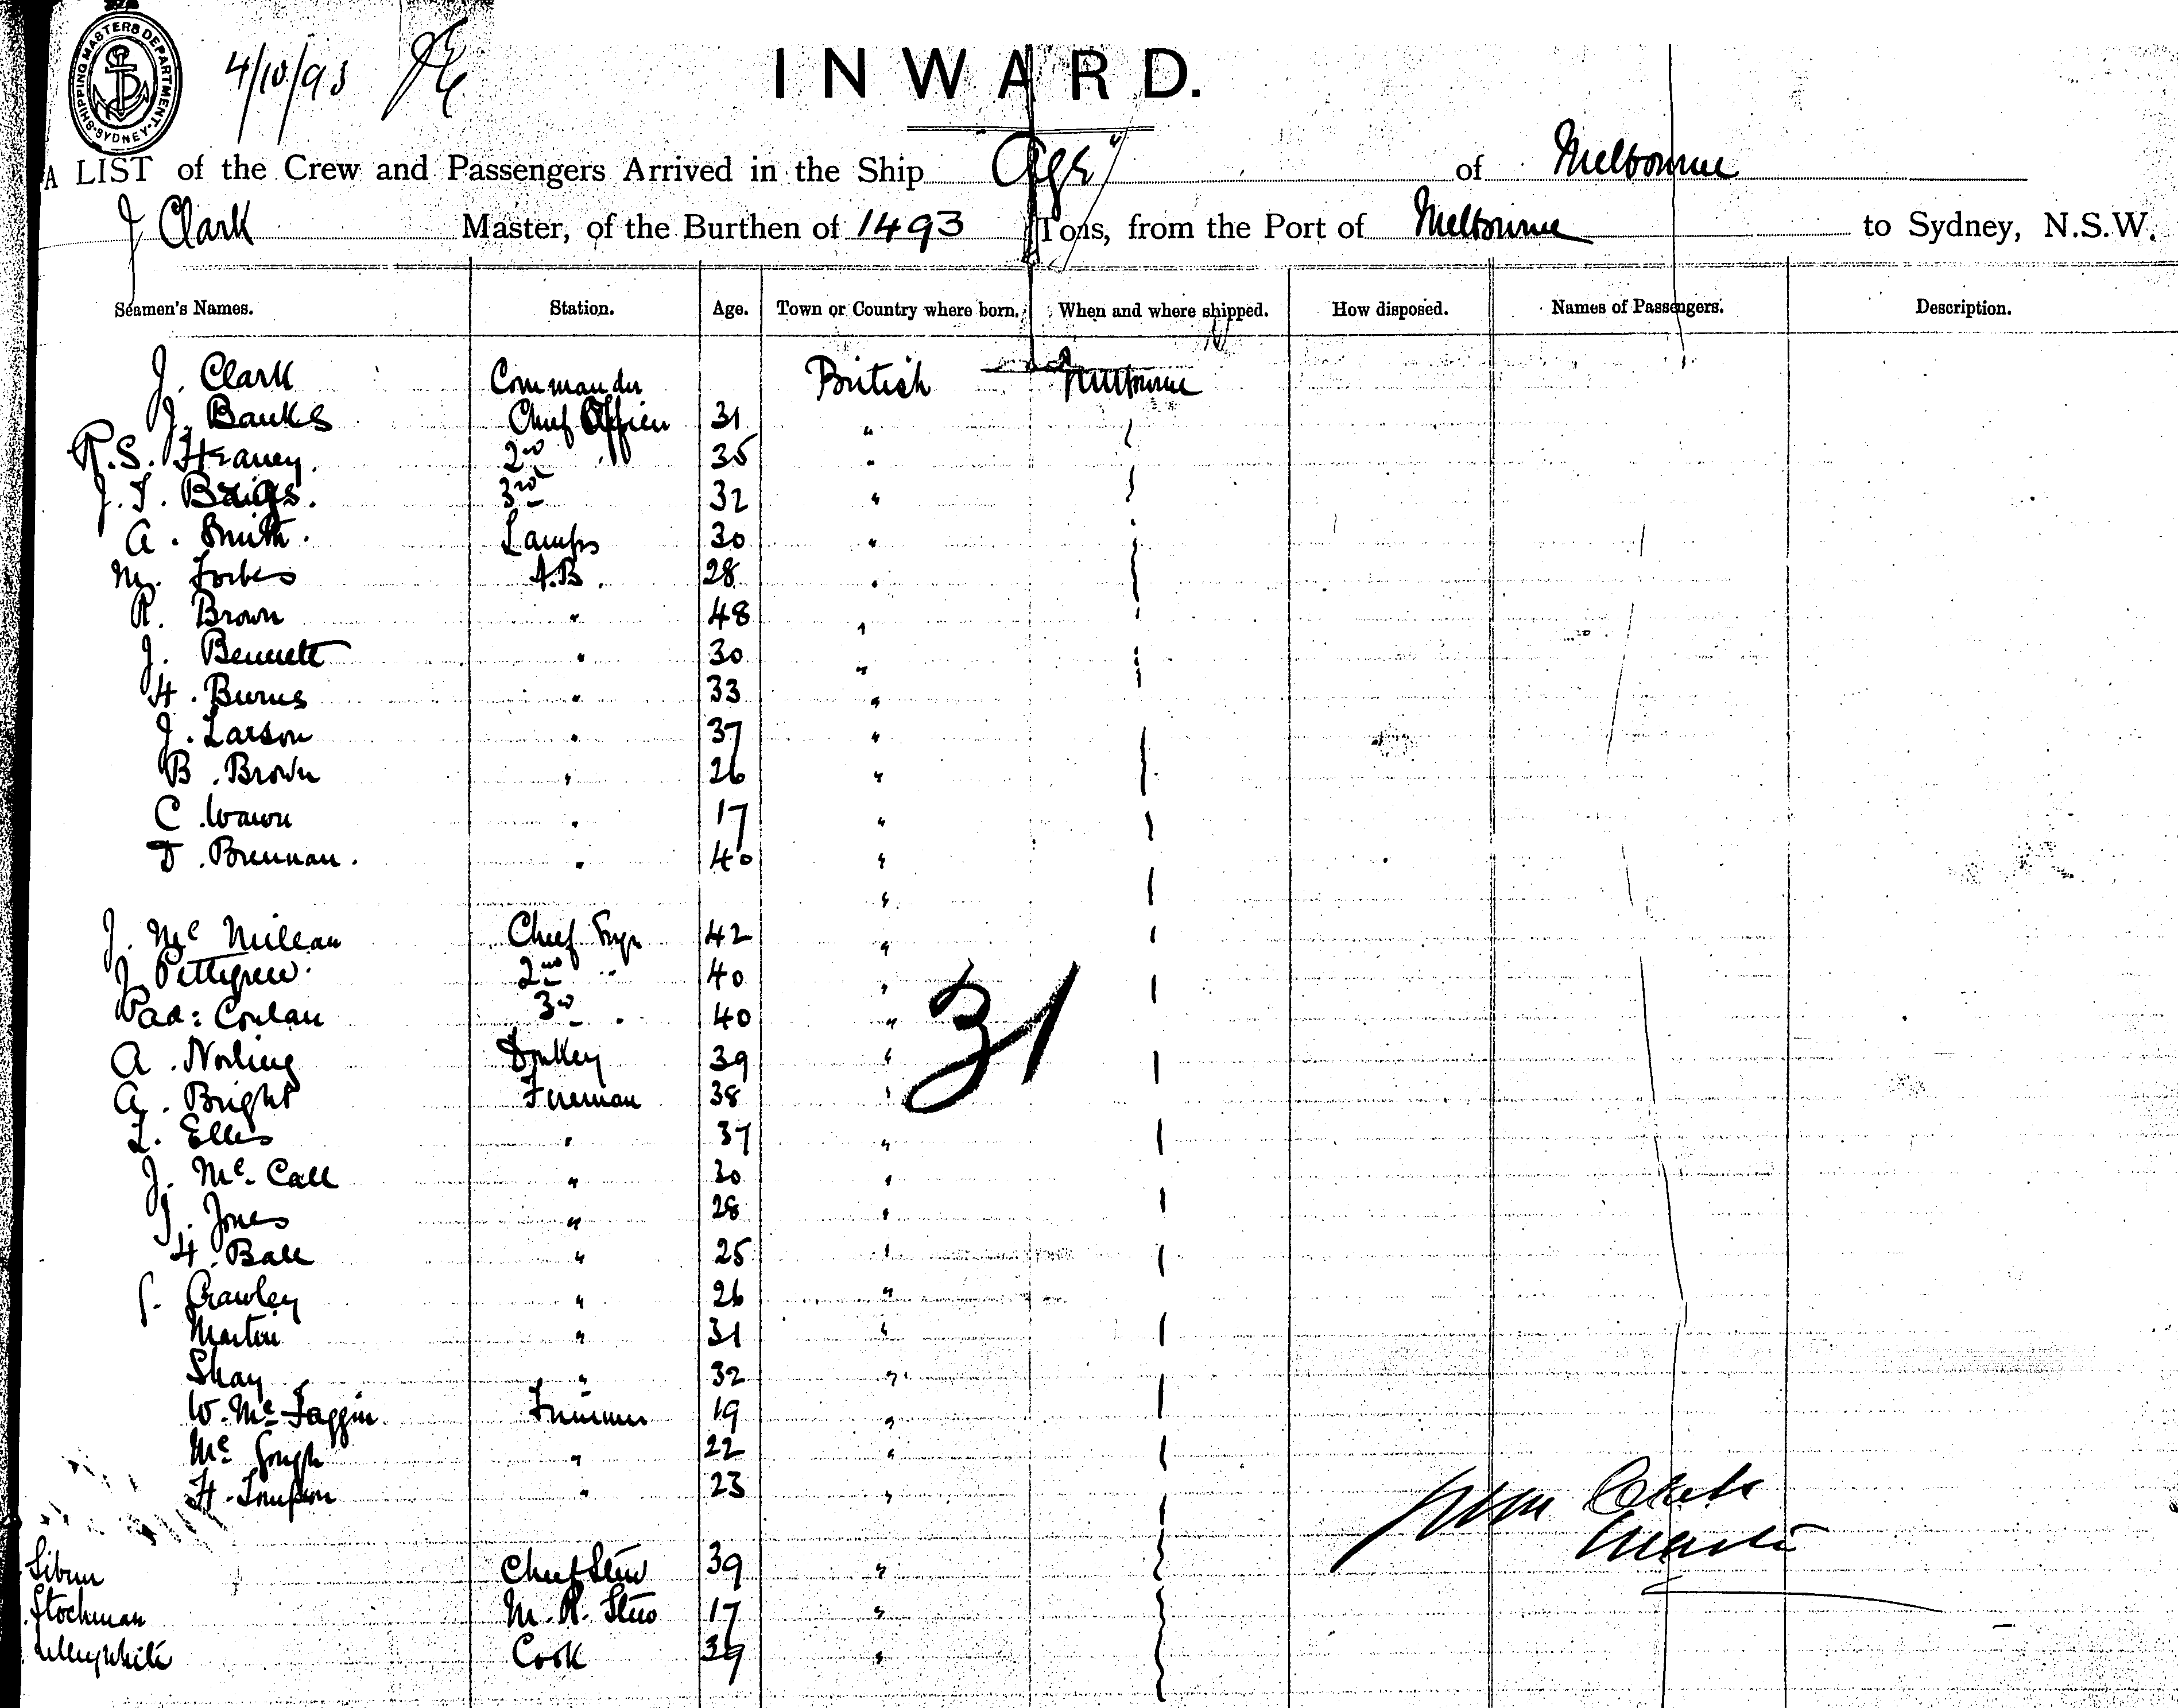 SHIPPING MASTERS DEPARTMENT. SYDNEY.
4/10/93
INWARD.
A LIST of the Crew and Passengers Arrived in the Ship "Age" of Melbourne
J Clark Master, of the Burthen of 1493 Tons, from the Port of Melbourne to Sydney, N.S.W.
Seamen's Names. Station. Age. Town or Country where born. When and where shipped. How disposed. Names of Passengers. Description.
J. Clark Commander British Melbourne
J. Banks Chief Officer 31 "
R.S. Heaney. 2nd " 35 "
J.T. Briggs. 3rd 32 "
A. Smith. Lamps 30 "
M. Forbes A.B. 28 "
R. Brown " 48 "
J. Bennett " 30 "
H. Burns " 33 "
J. Larson " 37 "
B. Brown " 26 "
C. Wawn " 17 "
D. Brennan. " 40 "
"
J. McMillan Chief Engr 42 "
J Pettigrew. 2nd " 40 "
Pad: Conlan 3rd " 40 "
31
A. Norling Donkey 39 "
A. Bright Fireman 38 "
L. Ellis " 37 "
J. McCall " 30 "
J. Jones " 28 "
H. Ball " 25 "
Crawley " 26 "
Martin " 31 "
Shay " 32 "
W. McFaggin Trimmer 19 "
Mc Gough " 22 "
H. " 23 "
John Clark
Master
Chief Stew 39 "
Stockman M.R. Stew 17 "
Lilleywhite Cook 39 "